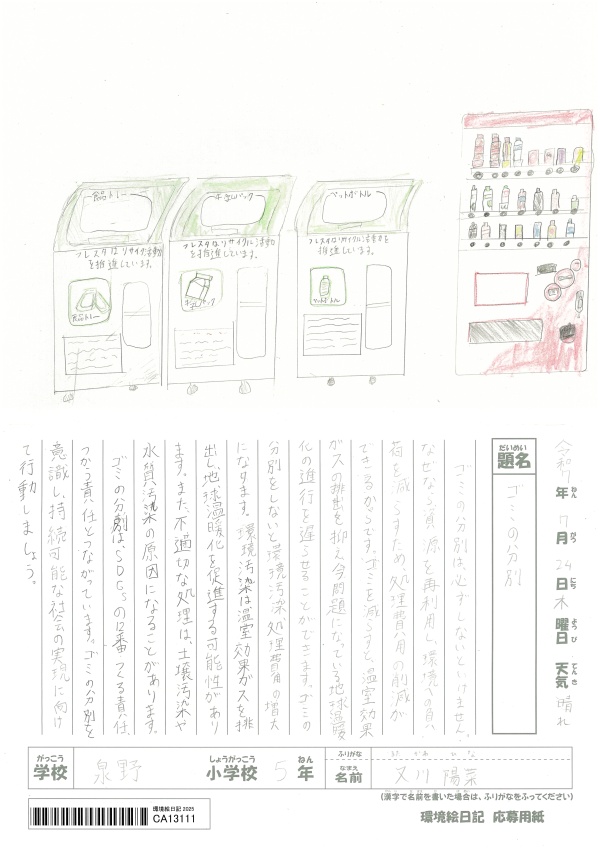 食品トレー
フレスタはリサイクル活動
を推進しています。
食品トレー
牛乳パック
フレスタはリサイクルに活動
を推進しています。
牛乳パック
ペットボトル
フレスタはリサイクル活動を
推進しています。
ペットボトル
令和7年7月24日木曜日 天気 晴れ
ねん がつ にち ようび てんき
だいめい
題名 ゴミの分別
ゴミの分別は、必ずしないといけません。
なぜなら資源を再利用し、環境への負
荷を減らすため、処理費用の削減が
できるからです。ゴミを減らすと、温室効果
ガスの排出を抑え今問題になっている地球温暖
化の進行を遅らせることができます。ゴミの
分別をしないと環境汚染、処理費用の増大
になります。環境汚染は温室効果ガスを排
出し、地球温暖化を促進する可能性があり
ます。また、不適切な処理は、土壌汚染や
水質汚染の原因になることがあります。
ゴミの分別は、SDGsの12番つくる責任、
つかう責任とつながっています。ゴミの分別を
意識し、持続可能な社会の実現に向け
て行動しましょう。
がっこう
学校 泉野
しょうがっこう
小学校
5 ねん
年
ふりがな
なまえ
名前 又川 陽菜
(漢字で名前を書いた場合は、ふりがなをふってください)
環境絵日記 2025
CA13111
環境絵日記 応募用紙